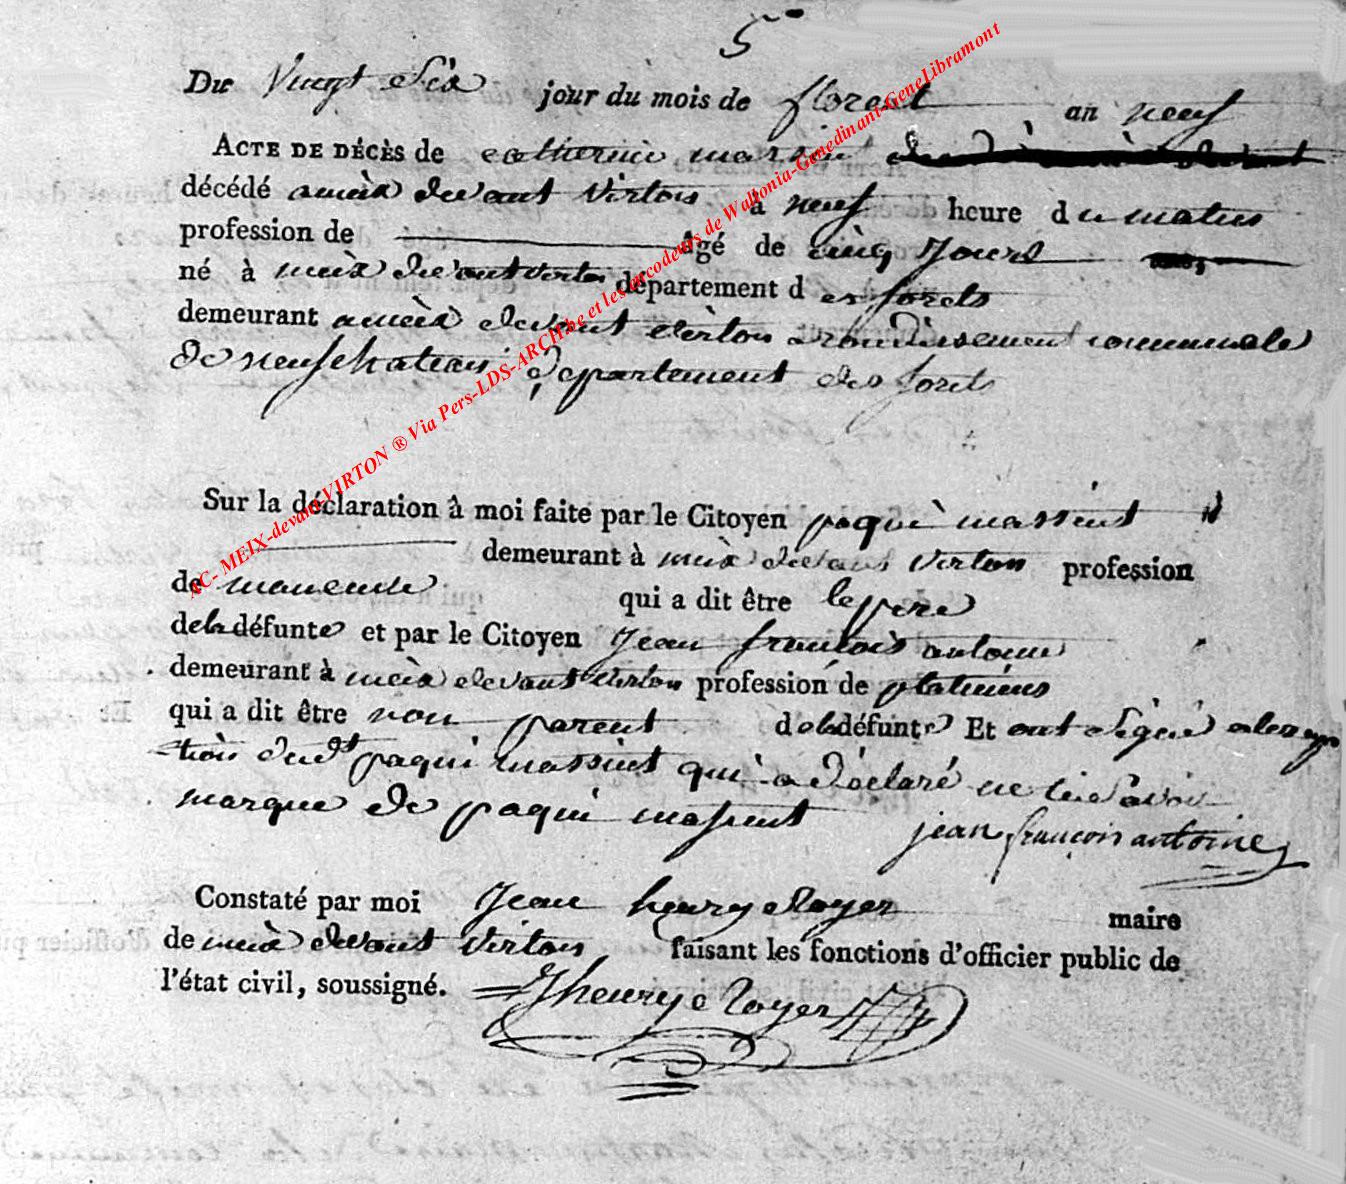 5
Du Vingt Six jour du mois de floreal an neuf
ACTE DE DÉCÈS de catherine massint
décédé a meix devant Virton à neuf heure du matin
profession de âgé de cinq Jours
né à meix devant virton département des forets
demeurant a meix devant virton arondissement communale
de neufchateau departement des forets
Sur la déclaration à moi faite par le Citoyen paqui massint
demeurant à meix devant Virton profession
de maneuvre qui a dit être le pere
de la défunte et par le Citoyen Jean françois antoine
demeurant à meix devant Virton profession de
qui a dit être non parent de la défunte Et ont Signé alexcep
tion dudt paqui massint qui a déclaré ne le savoir
marque de paqui massint jean françois antoine
Constaté par moi Jean henry Royer maire
de meix devant Virton faisant les fonctions d'officier public de
l'état civil, soussigné. Jhenry Royer
AC- MEIX-devant-VIRTON ® Via Pers-LDS-ARCH.be et les encodeurs de Wallonia-Genedinant-GeneLibramont